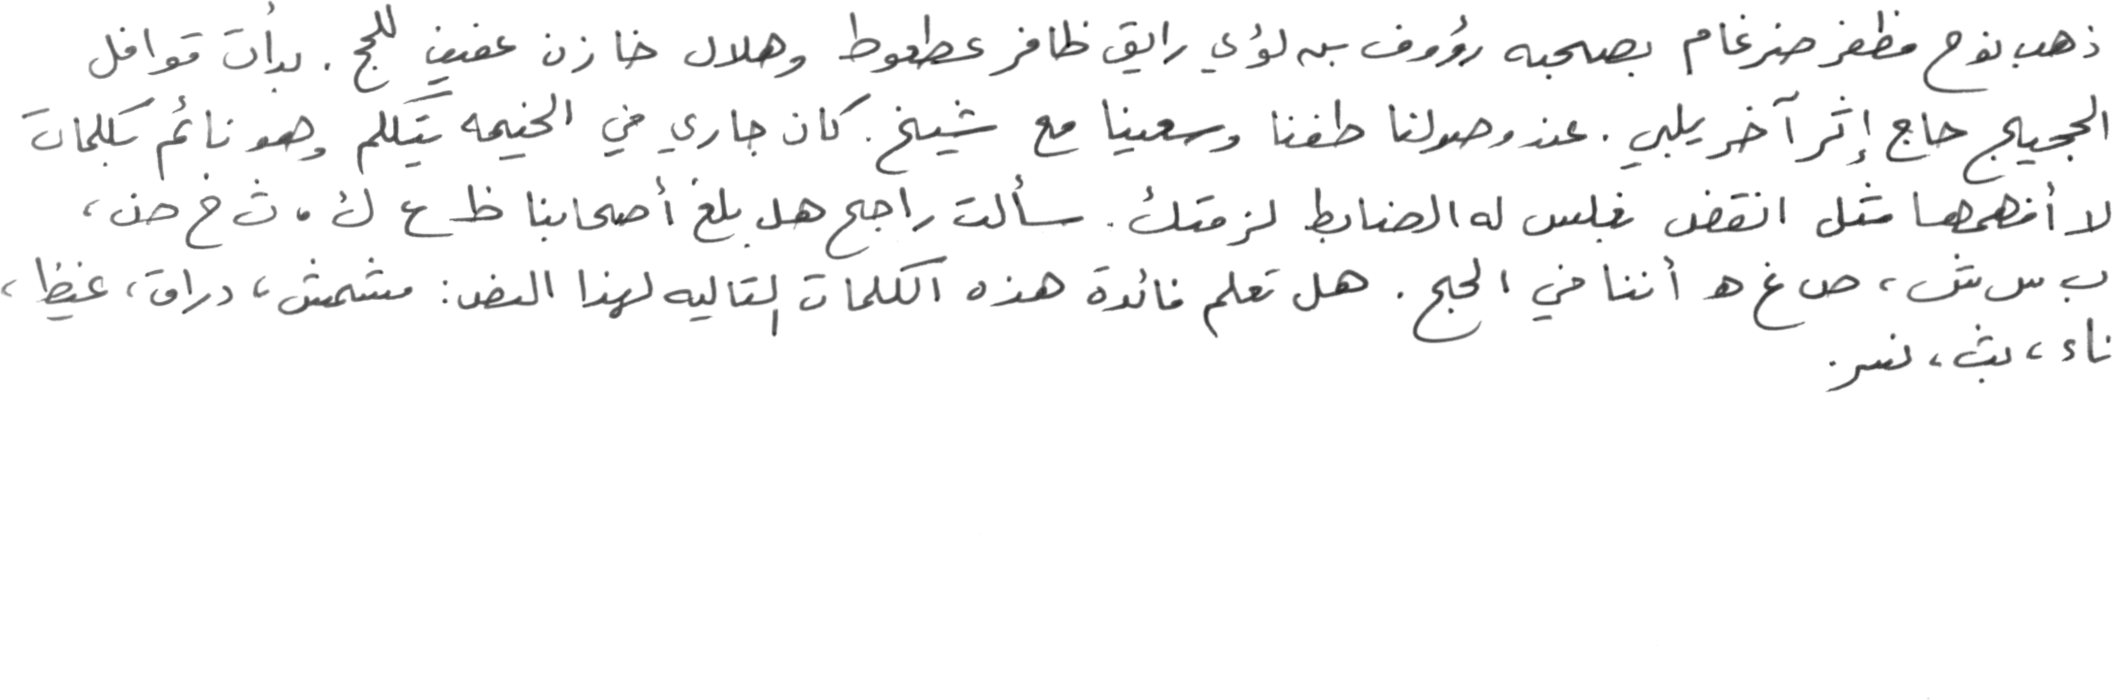 ذهب نوح مظفر ضرغام بصحبه رؤوف بن لؤي رايق ظافر عطعوط وهلال خازن عفيف للحج . بدأت قوافل
الحجيج حاج إثر آخر يلبي . عند وصولنا طفنا وسعينا مع شيخ . كان جاري في الخيمه يتكلم وهو نائم بكلمات
لا أفهمها مثل انقض نغلس له الضابط لزمتك . سألت راجح هل بلغ أصحابنا ظ ع ك ، ث خ ض ،
ب س ش ، ص غ ه أننا في الحج . هل تعلم فائدة هذه الكلمات التاليه لهذا النص : مشمش ، دراق ، غيظ ،
ناء ، بث ، نسر .